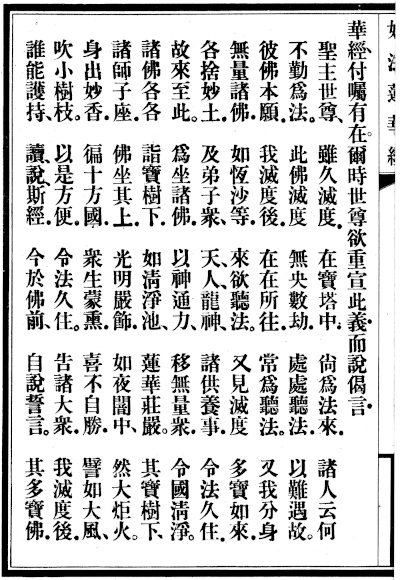 妙法蓮華經
華經付囑有在。爾時世尊欲重宣此義而說偈言。
聖主世尊、雖久滅度、在寶塔中、尙爲法來。諸人云何
不勤爲法。此佛滅度無央數劫。處處聽法。以難遇故。
彼佛本願。我滅度後、在在所往、常爲聽法。又我分身
無量諸佛、如恆沙等、來欲聽法。又見滅度多寶如來。
各捨妙土、及弟子衆、天人龍神、諸供養事、令法久住、
故來至此。爲坐諸佛、以神通力、移無量衆、令國清淨。
諸佛各各詣寶樹下、如清淨池、蓮華莊嚴。其寶樹下、
諸師子座、佛坐其上、光明嚴飾。如夜闇中、然大炬火。
身出妙香、徧十方國。衆生蒙熏、喜不自勝。譬如大風、
吹小樹枝。以是方便、令法久住。告諸大衆。我滅度後、
誰能護持、讀說斯經、今於佛前、自說誓言。其多寶佛、